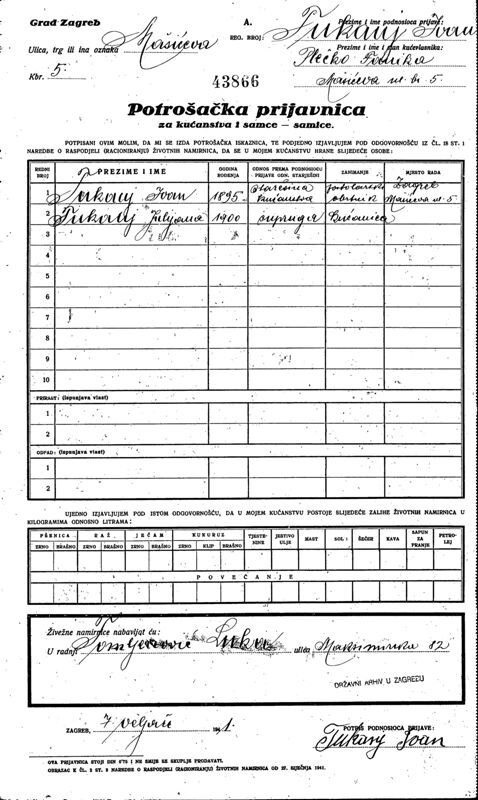 Grad Zagreb
A.
Prezime i ime podnosioca prijave:
Ulica, trg ili ina oznaka
REG. BROJ:
Tukanj Ivan
Prezime i ime i stan kućevlasnika:
Kbr. 5.
43866
br. 5.
Potrošačka prijavnica
za kućanstva i samce — samice.
POTPISANI OVIM MOLIM, DA MI SE IZDA POTROŠAČKA ISKAZNICA, TE PODJEDNO IZJAVLJUJEM POD ODGOVORNOŠĆU IZ ČL. 18 ST. 1
NAREDBE O RASPODJELI (RACIONIRANJU) ŽIVOTNIH NAMIRNICA, DA SE U MOJEM KUĆANSTVU HRANE SLIJEDEĆE OSOBE:
REDNI BROJ PREZIME I IME GODINA ROĐENJA ODNOS PREMA PODNOSIOCU PRIJAVE ODN. STARJEŠINI ZANIMANJE MJESTO RADA
1 Tukanj Ivan 1895 starešina kućanstva obrtnik Zagreb
2 Tukanj Julijana 1900 supruga kućanica
3
4
5
6
7
8
9
10
PRIRAST: (Ispunjava vlast)
1
2
ODPAD: (Ispunjava vlast)
1
2
UJEDNO IZJAVLJUJEM POD ISTOM ODGOVORNOŠĆU, DA U MOJEM KUĆANSTVU POSTOJE SLIJEDEĆE ZALIHE ŽIVOTNIH NAMIRNICA U
KILOGRAMIMA ODNOSNO LITRAMA:
PŠENICA RAŽ JEČAM KUKURUZ TJESTENINE JESTIVO ULJE MAST SOL ŠEĆER KAVA SAPUN ZA PRANJE PETROLEJ
ZRNO BRAŠNO ZRNO BRAŠNO ZRNO BRAŠNO ZRNO KLIP BRAŠNO
POVEĆANJE
Živežne namirnice nabavljat ću:
U radnji Luka ulica 82
DRŽAVNI ARHIV U ZAGREBU
ZAGREB, 7 veljače 1941.
POTPIS PODNOSIOCA PRIJAVE:
Tukanj Ivan
OVA PRIJAVNICA STOJI DIN 0'75 I NE SMIJE SE SKUPLJE PRODAVATI.
OBRAZAC K ČL. 2 ST. 2 NAREDBE O RASPODJELI (RACIONIRANJU) ŽIVOTNIH NAMIRNICA OD 27. SIJEČNJA 1941.